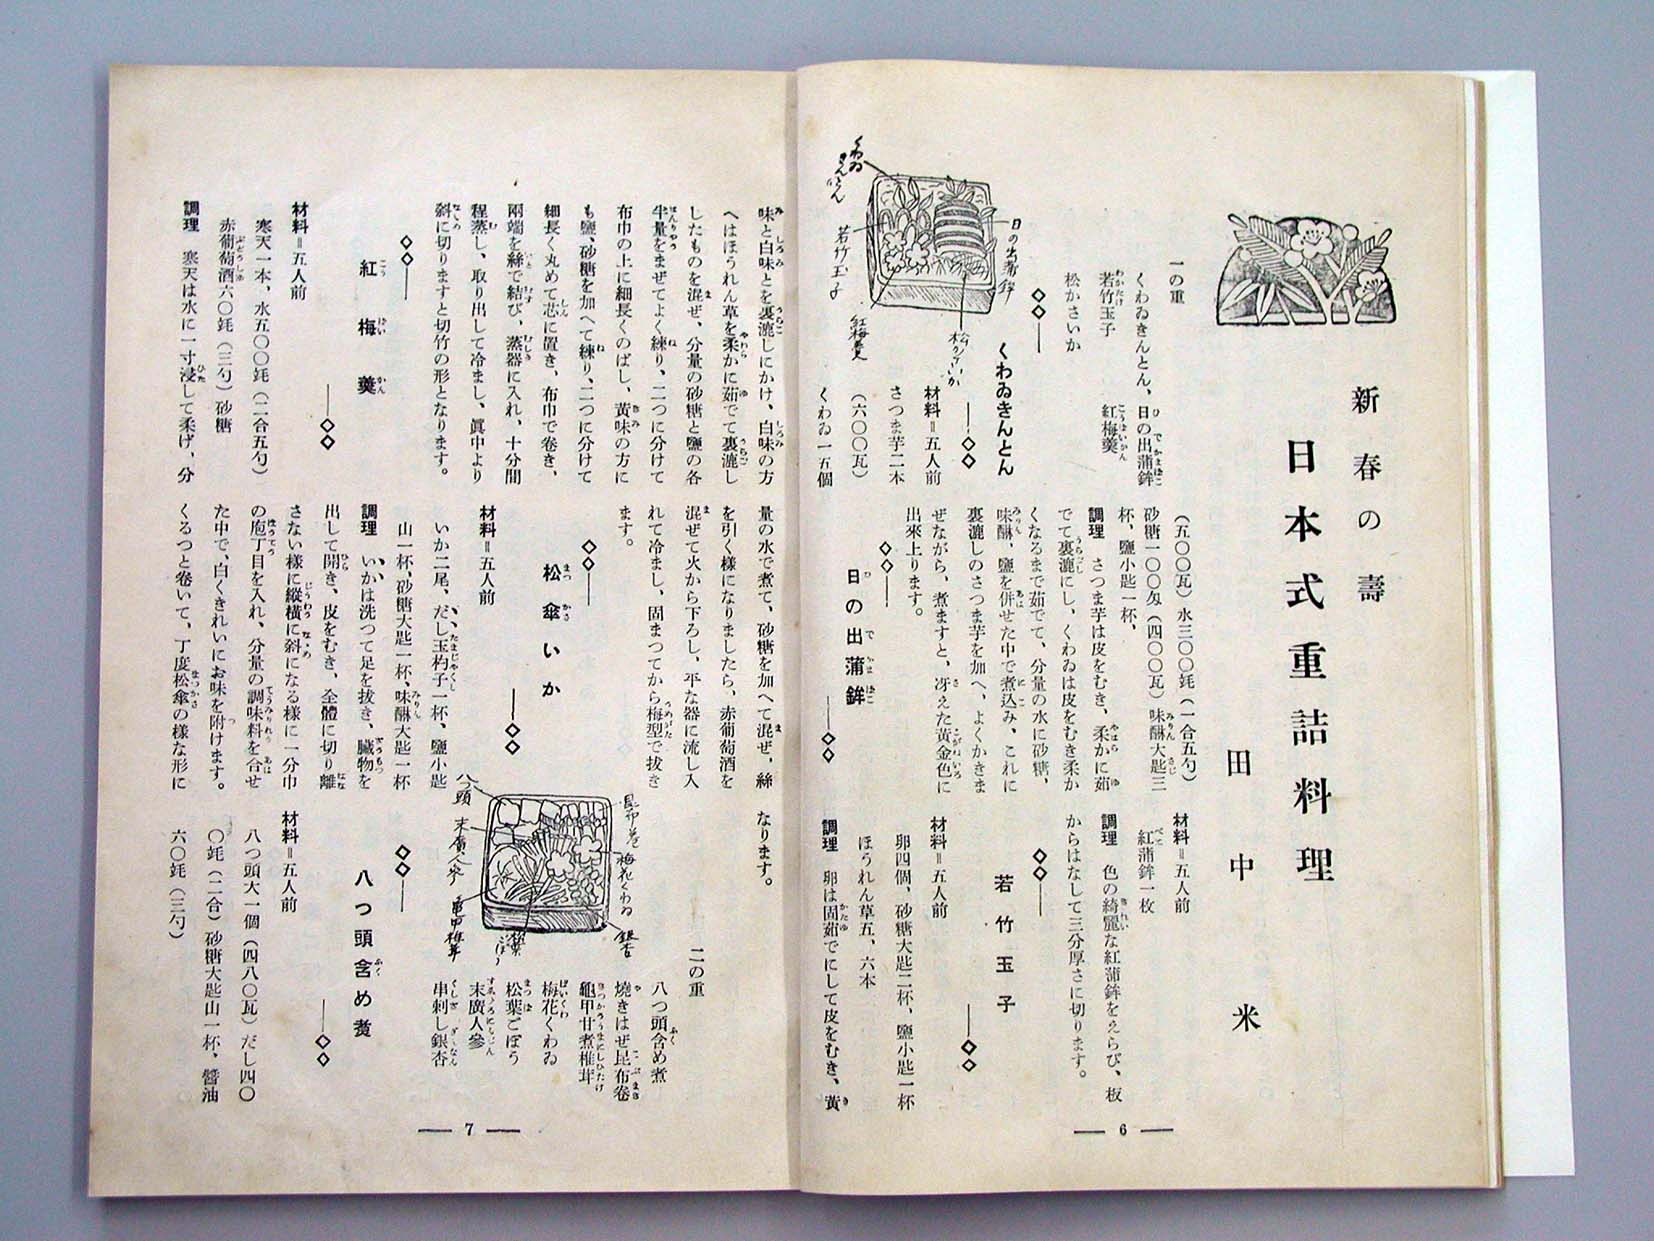 新春の壽
日本式重詰料理
田中米
一の重
くわゐきんとん、日の出蒲鉾
若竹玉子　紅梅羹
松かさいか
くわゐきんとん
材料＝五人前
さつま芋二本
（六〇〇瓦）
くわゐ一五個
（五〇〇瓦）水三〇〇竓（一合五勺）
砂糖一〇〇匁（四〇〇瓦）味醂大匙三
杯、鹽小匙一杯、
調理　さつま芋は皮をむき、柔かに茹
でて裏漉にし、くわゐは皮をむき柔か
くなるまで茹でて、分量の水に砂糖、
味醂、鹽を併せた中で煮込み、これに
裏漉しのさつま芋を加へ、よくかきま
ぜながら、煮ますと、冴えた黄金色に
出來上ります。
日の出蒲鉾
材料＝五人前
紅蒲鉾一枚
調理　色の綺麗な紅蒲鉾をえらび、板
からはなして三分厚さに切ります。
若竹玉子
材料＝五人前
卵四個、砂糖大匙二杯、鹽小匙一杯
ほうれん草五、六本
調理　卵は固茹でにして皮をむき、黄
くわゐきんとん
日の出蒲鉾
若竹玉子
紅梅羹
松かさいか
6
味と白味とを裏漉しにかけ、白味の方
へはほうれん草を柔かに茹でて裏漉し
したものを混ぜ、分量の砂糖と鹽の各
半量をまぜてよく練り、二つに分けて
布巾の上に細長くのばし、黄味の方に
も鹽、砂糖を加へて練り、二つに分けて
細長く丸めて芯に置き、布巾で卷き、
兩端を絲で結び、蒸器に入れ、十分間
程蒸し、取り出して冷まし、眞中より
斜に切りますと切竹の形となります。
紅梅羹
材料＝五人前
寒天一本、水五〇〇竓（二合五勺）
赤葡萄酒六〇竓（三勺）砂糖
調理　寒天は水に一寸浸して柔げ、分
量の水で煮て、砂糖を加へて混ぜ、絲
を引く様になりましたら、赤葡萄酒を
混ぜて火から下ろし、平な器に流し入
れて冷まし、固まつてから梅型で拔き
ます。
松傘いか
材料＝五人前
いか二尾、だし玉杓子一杯、鹽小匙
山一杯、砂糖大匙一杯、味醂大匙一杯
調理　いかは洗つて足を拔き、臟物を
出して開き、皮をむき、全體に切り離
さない様に縱横に斜になる様に一分巾
の庖丁目を入れ、分量の調味料を合せ
た中で、白くきれいにお味を附けます。
くるつと卷いて、丁度松傘の様な形に
なります。
二の重
八つ頭含め煮
燒きはぜ昆布卷
龜甲甘煮椎茸
梅花くわゐ
松葉ごぼう
末廣人參
串刺し銀杏
八つ頭含め煮
材料＝五人前
八つ頭大一個（四八〇瓦）だし四〇
〇竓（二合）砂糖大匙山一杯、醬油
六〇竓（三勺）
昆布卷
梅花くわゐ
銀杏
八つ頭
末廣人參
龜甲椎茸
松葉ごぼう
7